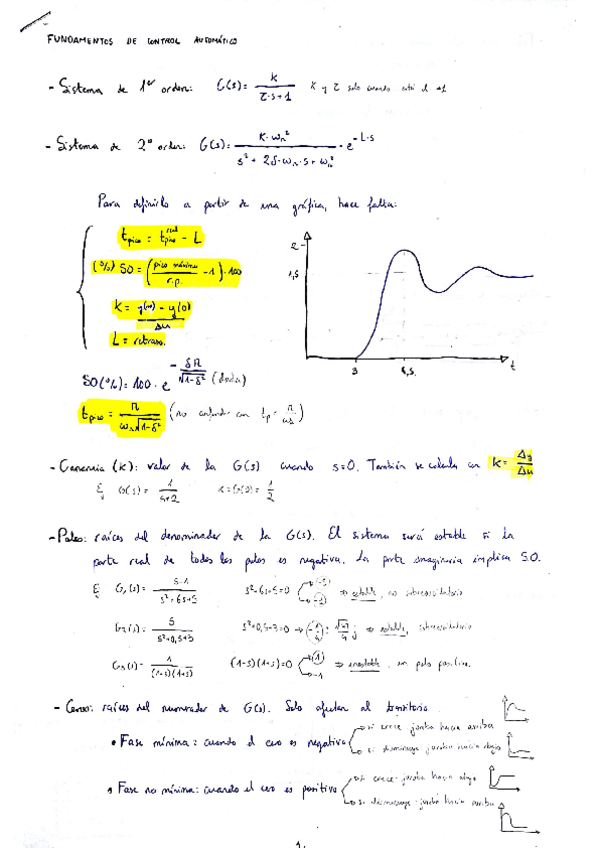 FUNDAMENTOS DE CONTROL AUTOMÁTICO
- Sistema de 1er orden: G(s) = K / τ·s+1 K y τ solo cuando está el +1
- Sistema de 2º orden: G(s) = K·ωn² / s² + 2δ·ωn·s + ωn² · e^-L·s
Para definirlo a partir de una gráfica, hace falta:
tpico = tpico^real - L
(%) SO = (pico máximo / r.p. - 1)·100
K = y(∞) - y(0) / Δu
L = retraso.
2
1,5
3
t
SO(%) = 100 · e^-δπ/√1-δ² (dada)
tpico = π / ωn√1-δ² (no confundir con tp =
- Ganancia (K): valor de la G(s) cuando s=0. También se calcula con K = Δy / Δu
G(s) = 1 / s+2 K = G(0) = 1/2
- Polos: raíces del denominador de la G(s). El sistema será estable si la
parte real de todos los polos es negativa. La parte imaginaria implica S.O.
G1(s) = s-1 / s²+6s+5 s²+6s+5=0 -5 -1 ⇒ estable, no sobreoscilatorio
G2(s) = 5 / s²+0,5+3 s²+0,5+3=0 ⇒ estable, sobreoscilatorio
G3(s) = 1 / (1-s)(1+s) (1-s)(1+s)=0 1 -1 ⇒ inestable, un polo positivo.
- Ceros: raíces del numerador de G(s). Solo afectan al transitorio.
• Fase mínima: cuando el cero es negativo
si crece joroba hacia arriba
si disminuye joroba hacia abajo
• Fase no mínima: cuando el cero es positivo
si crece joroba hacia abajo
si disminuye joroba hacia arriba
1.